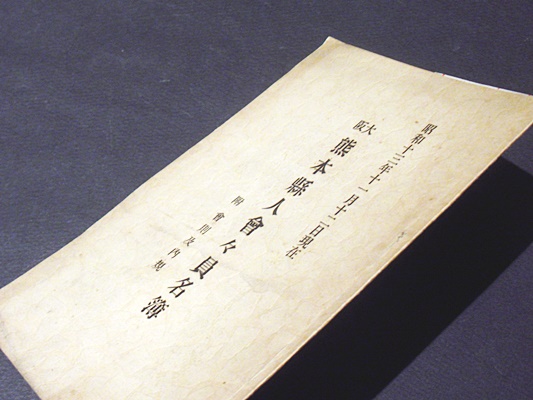 昭和十三年十一月十二日現在
大阪 熊本縣人會々員名簿
附會則及內規